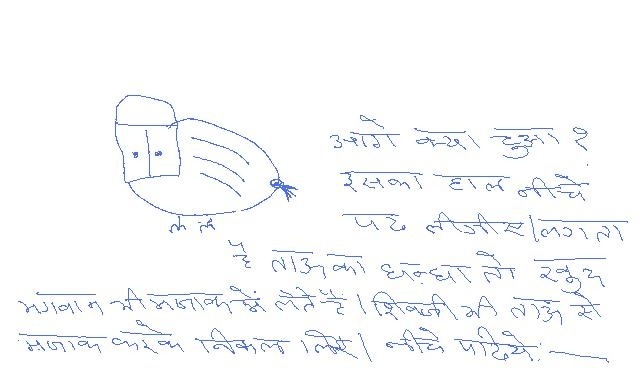 आगे क्या हुआ ?
इसका हाल नीचे
पढ लीजीए। लगता
है ताऊ का धन्धा तो खुद
भगवान भी मजाक में लेते हैं। शिवजी भी ताऊ से
मजाक करके निकल लिये। नीचे पढिये: